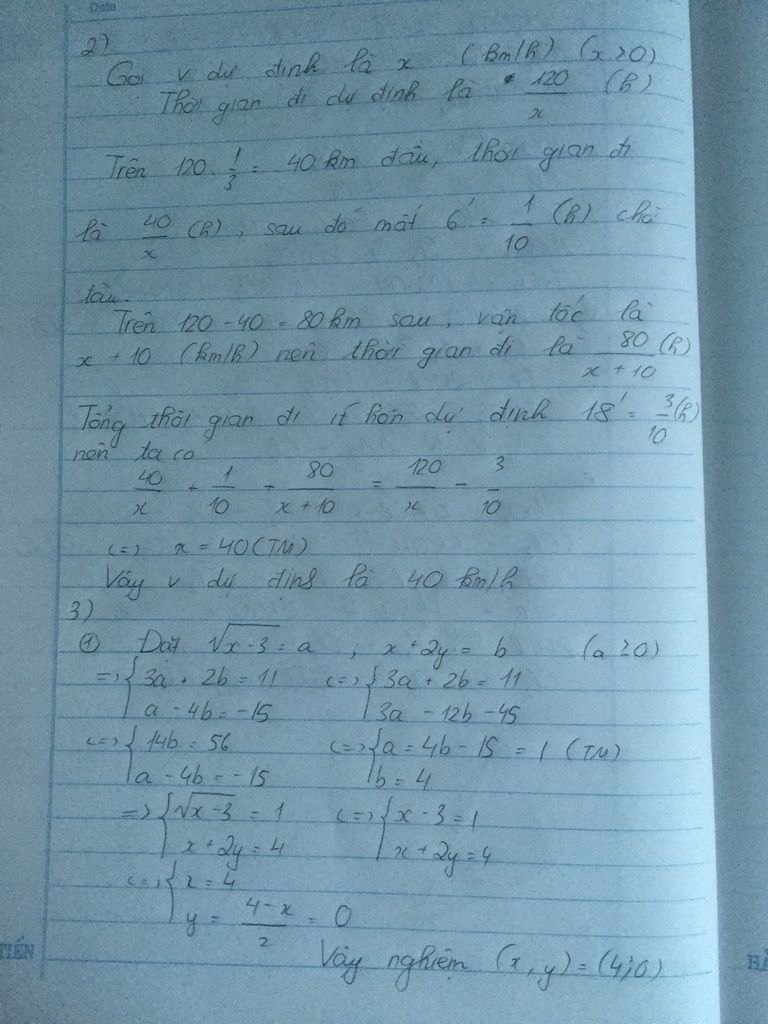 Date
2)
Gọi v dự định là x (km/h) (x > 0)
Thời gian đi dự định là 120/x (h)
Trên 120. 1/3 = 40 km đầu, thời gian đi
là 40/x (h), sau đó mất 6' = 1/10 (h) chờ
tàu.
Trên 120 - 40 = 80 km sau, vận tốc là
x + 10 (km/h) nên thời gian đi là 80/(x + 10) (h)
Tổng thời gian đi ít hơn dự định 18' = 3/10 (h)
nên ta có
40/x + 1/10 + 80/(x + 10) = 120/x - 3/10
<=> x = 40 (TM)
Vậy v dự định là 40 km/h
3)
① Đặt √(x-3) = a ; x + 2y = b (a ≥ 0)
=> { 3a + 2b = 11 <=> { 3a + 2b = 11
a - 4b = -15 3a - 12b - 45
<=> { 14b = 56 <=> { a = 4b - 15 = 1 (TM)
a - 4b = -15 b = 4
=> { √(x-3) = 1 <=> { x - 3 = 1
x + 2y = 4 x + 2y = 4
<=> { x = 4
y = (4-x)/2 = 0
Vậy nghiệm (x, y) = (4; 0)
TIẾN